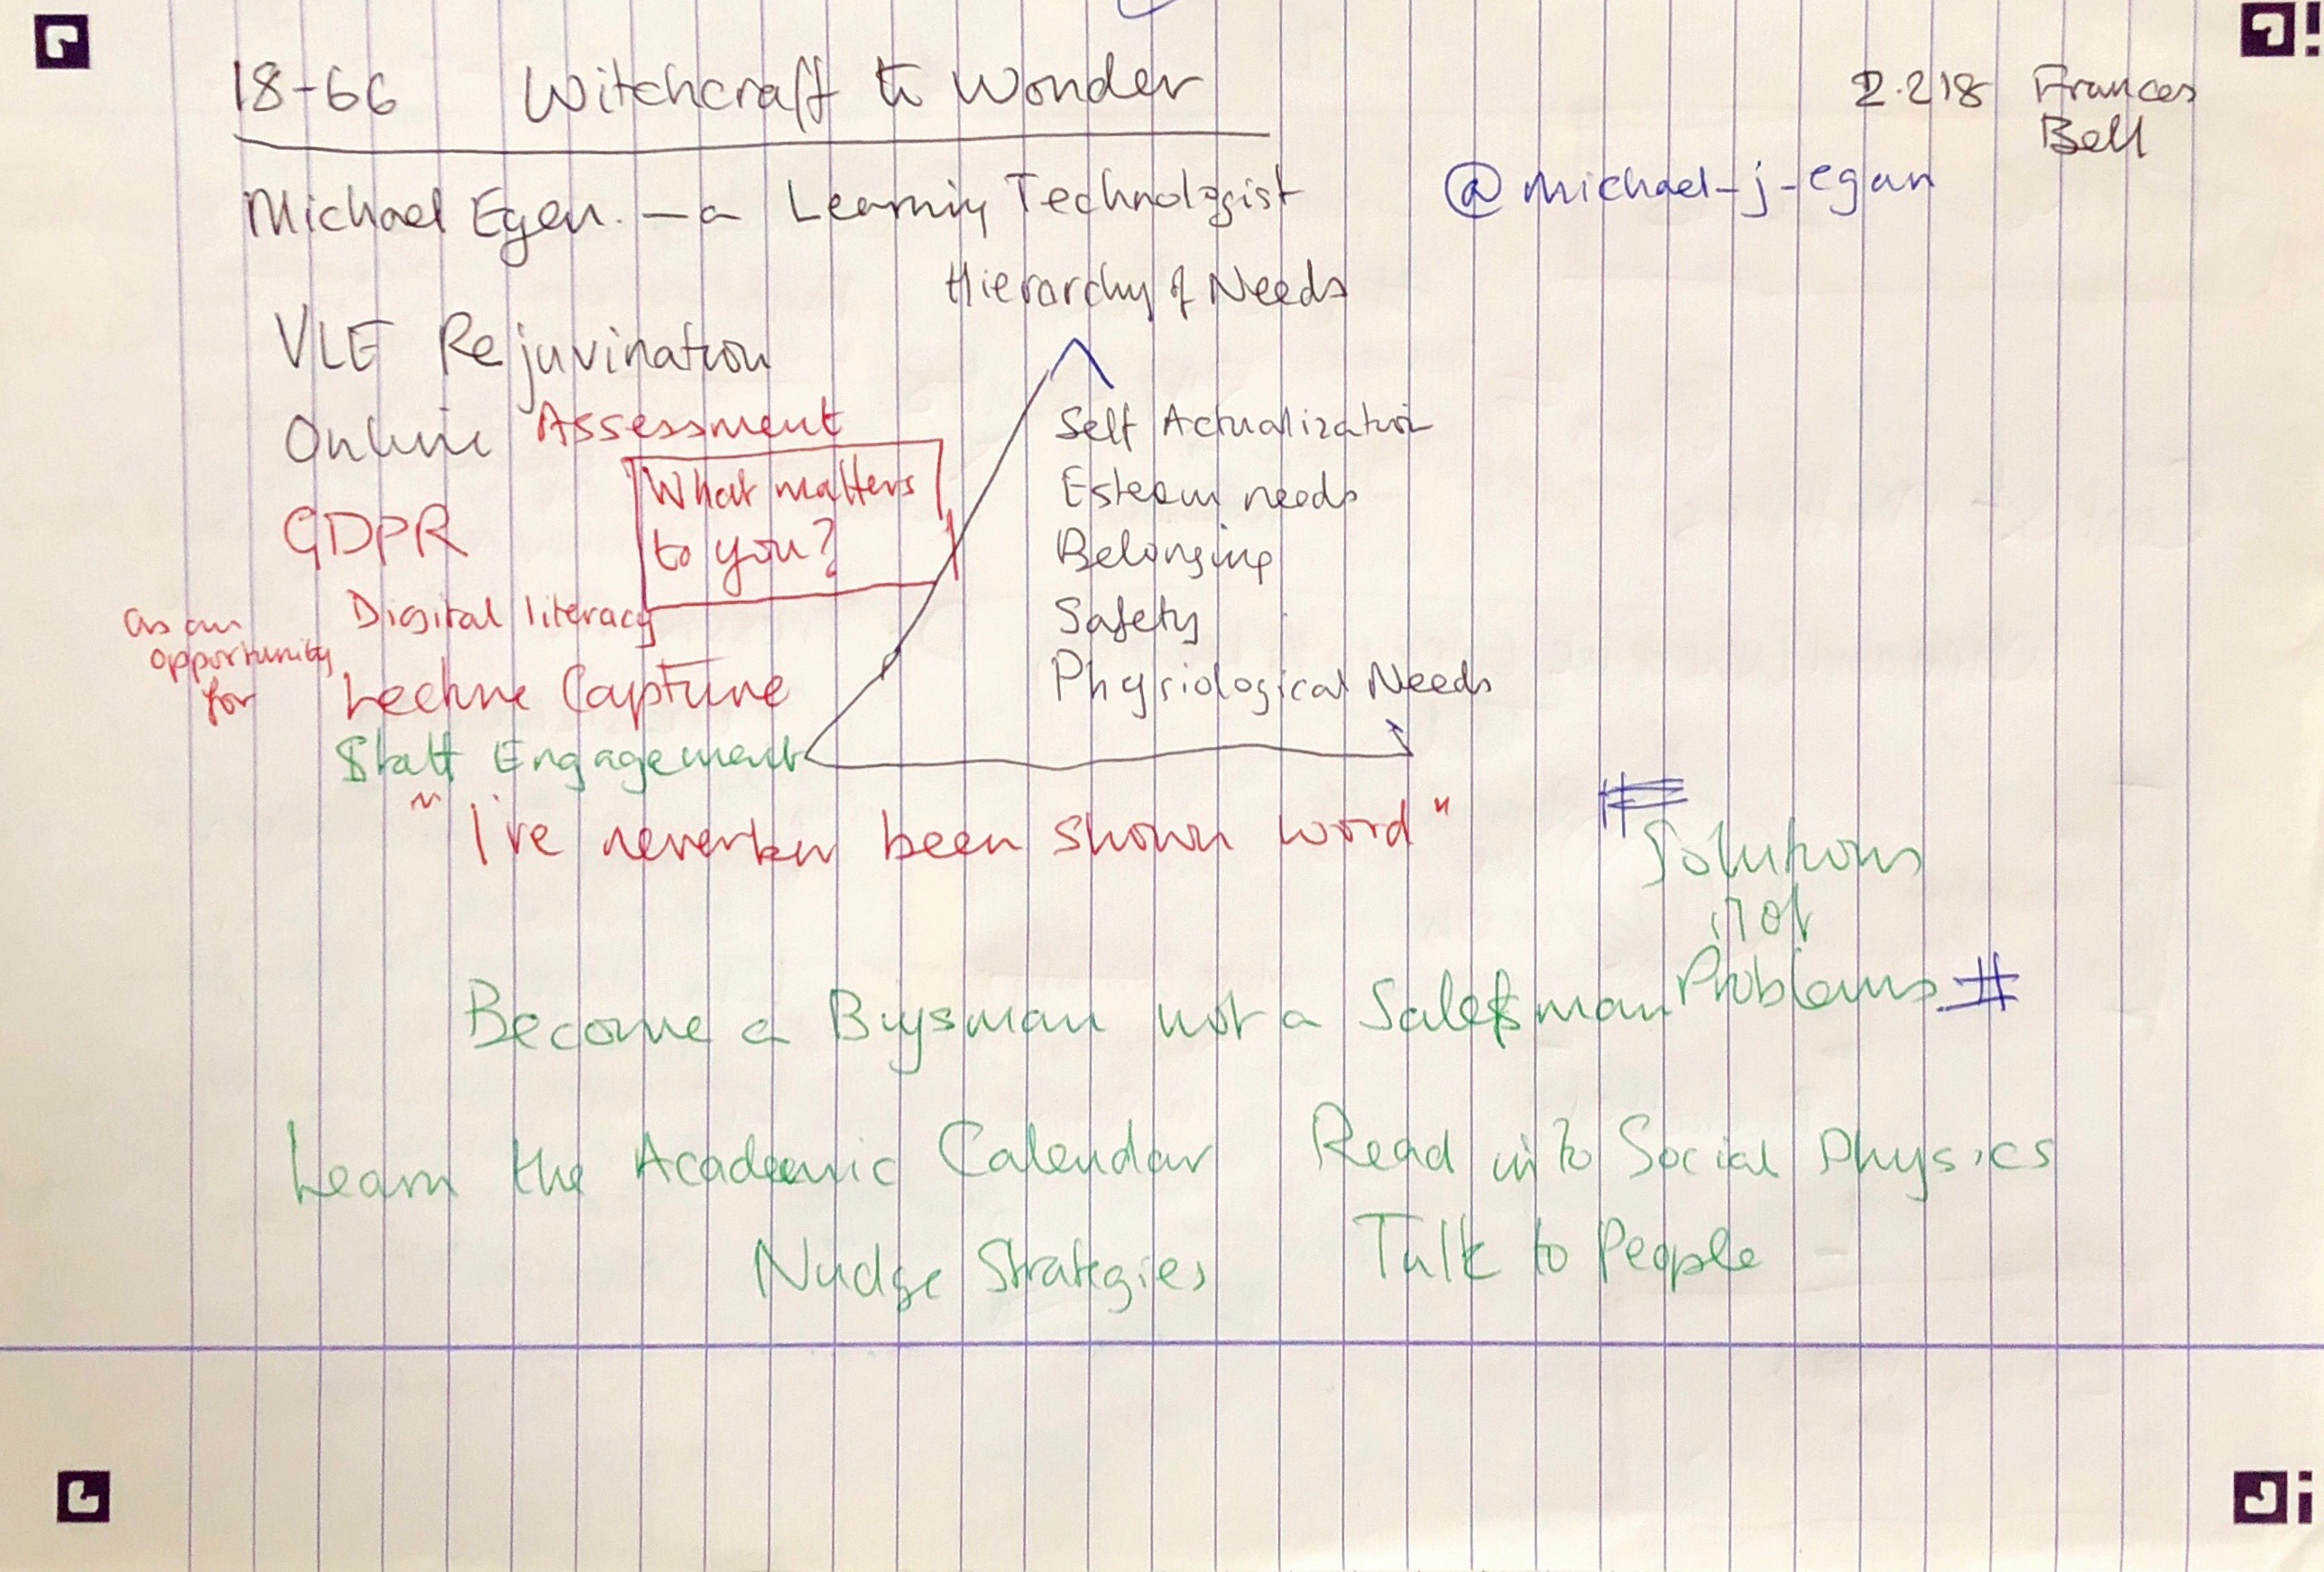 18-66 Witchcraft to Wonder
2.218 Frances
Bell
Michael Egan. — a Learning Technologist
@michael-j-egan
Hierarchy of Needs
VLE Rejuvination
Online Assessment
What matters
to you?
GDPR
as an
opportunity
for
Digital literacy
Lecture Capture
Staff Engagement
Self Actualization
Esteem needs
Belonging
Safety
Physiological Needs
"I've never been shown word"
#
Solutions
not
Problems #
Become a Buysman not a Salesman
Learn the Academic Calendar
Read into Social Physics
Nudge Strategies
Talk to People